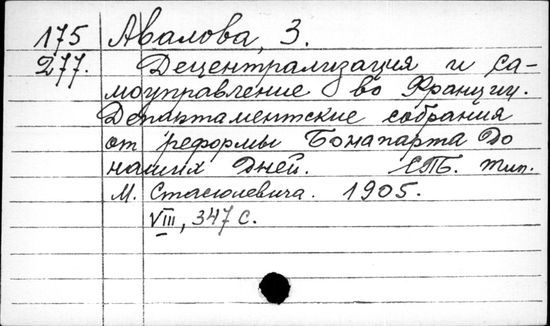 175 Авалова, З.
277. Децентрализация и са-
моуправление во Франции.
Департаментские собрания
от реформы Бонапарта до
наших дней. СПБ. тип.
М. Стасюлевича. 1905.
VIII, 347 с.